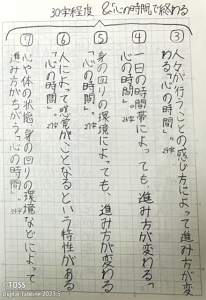 30字程度 &「心の時間」で終わる
③人々が行うことの感じ方によって進み方が変
わる「心の時間」。
④一日の時間帯によっても、進み方が変わる「
心の時間」。
⑤身の回りの環境によっても、進み方が変わる
「心の時間」。
⑥人によって感覚がことなるという特性がある
「心の時間」。
⑦心や体の状態、身の回りの環境などによって
進み方がちがう「心の時間」。
TOSS
Digital Takahire 2023.5